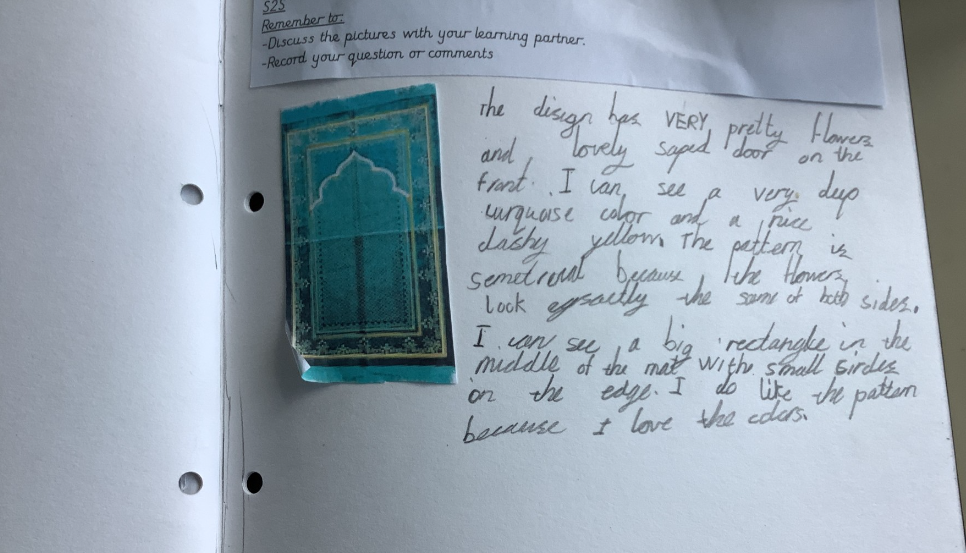 S2S
Remember to:
-Discuss the pictures with your learning partner.
-Record your question or comments
The disign has VERY pretty flowers
and lovely saped door on the
front. I can see a very deep
turquoise color and a nice
clashy yellow. The pattern is
because the flowers
look the same of both sides.
I can see a big rectangle in the
middle of the mat with small circles
on the edge. I do like the pattern
because I love the colors.